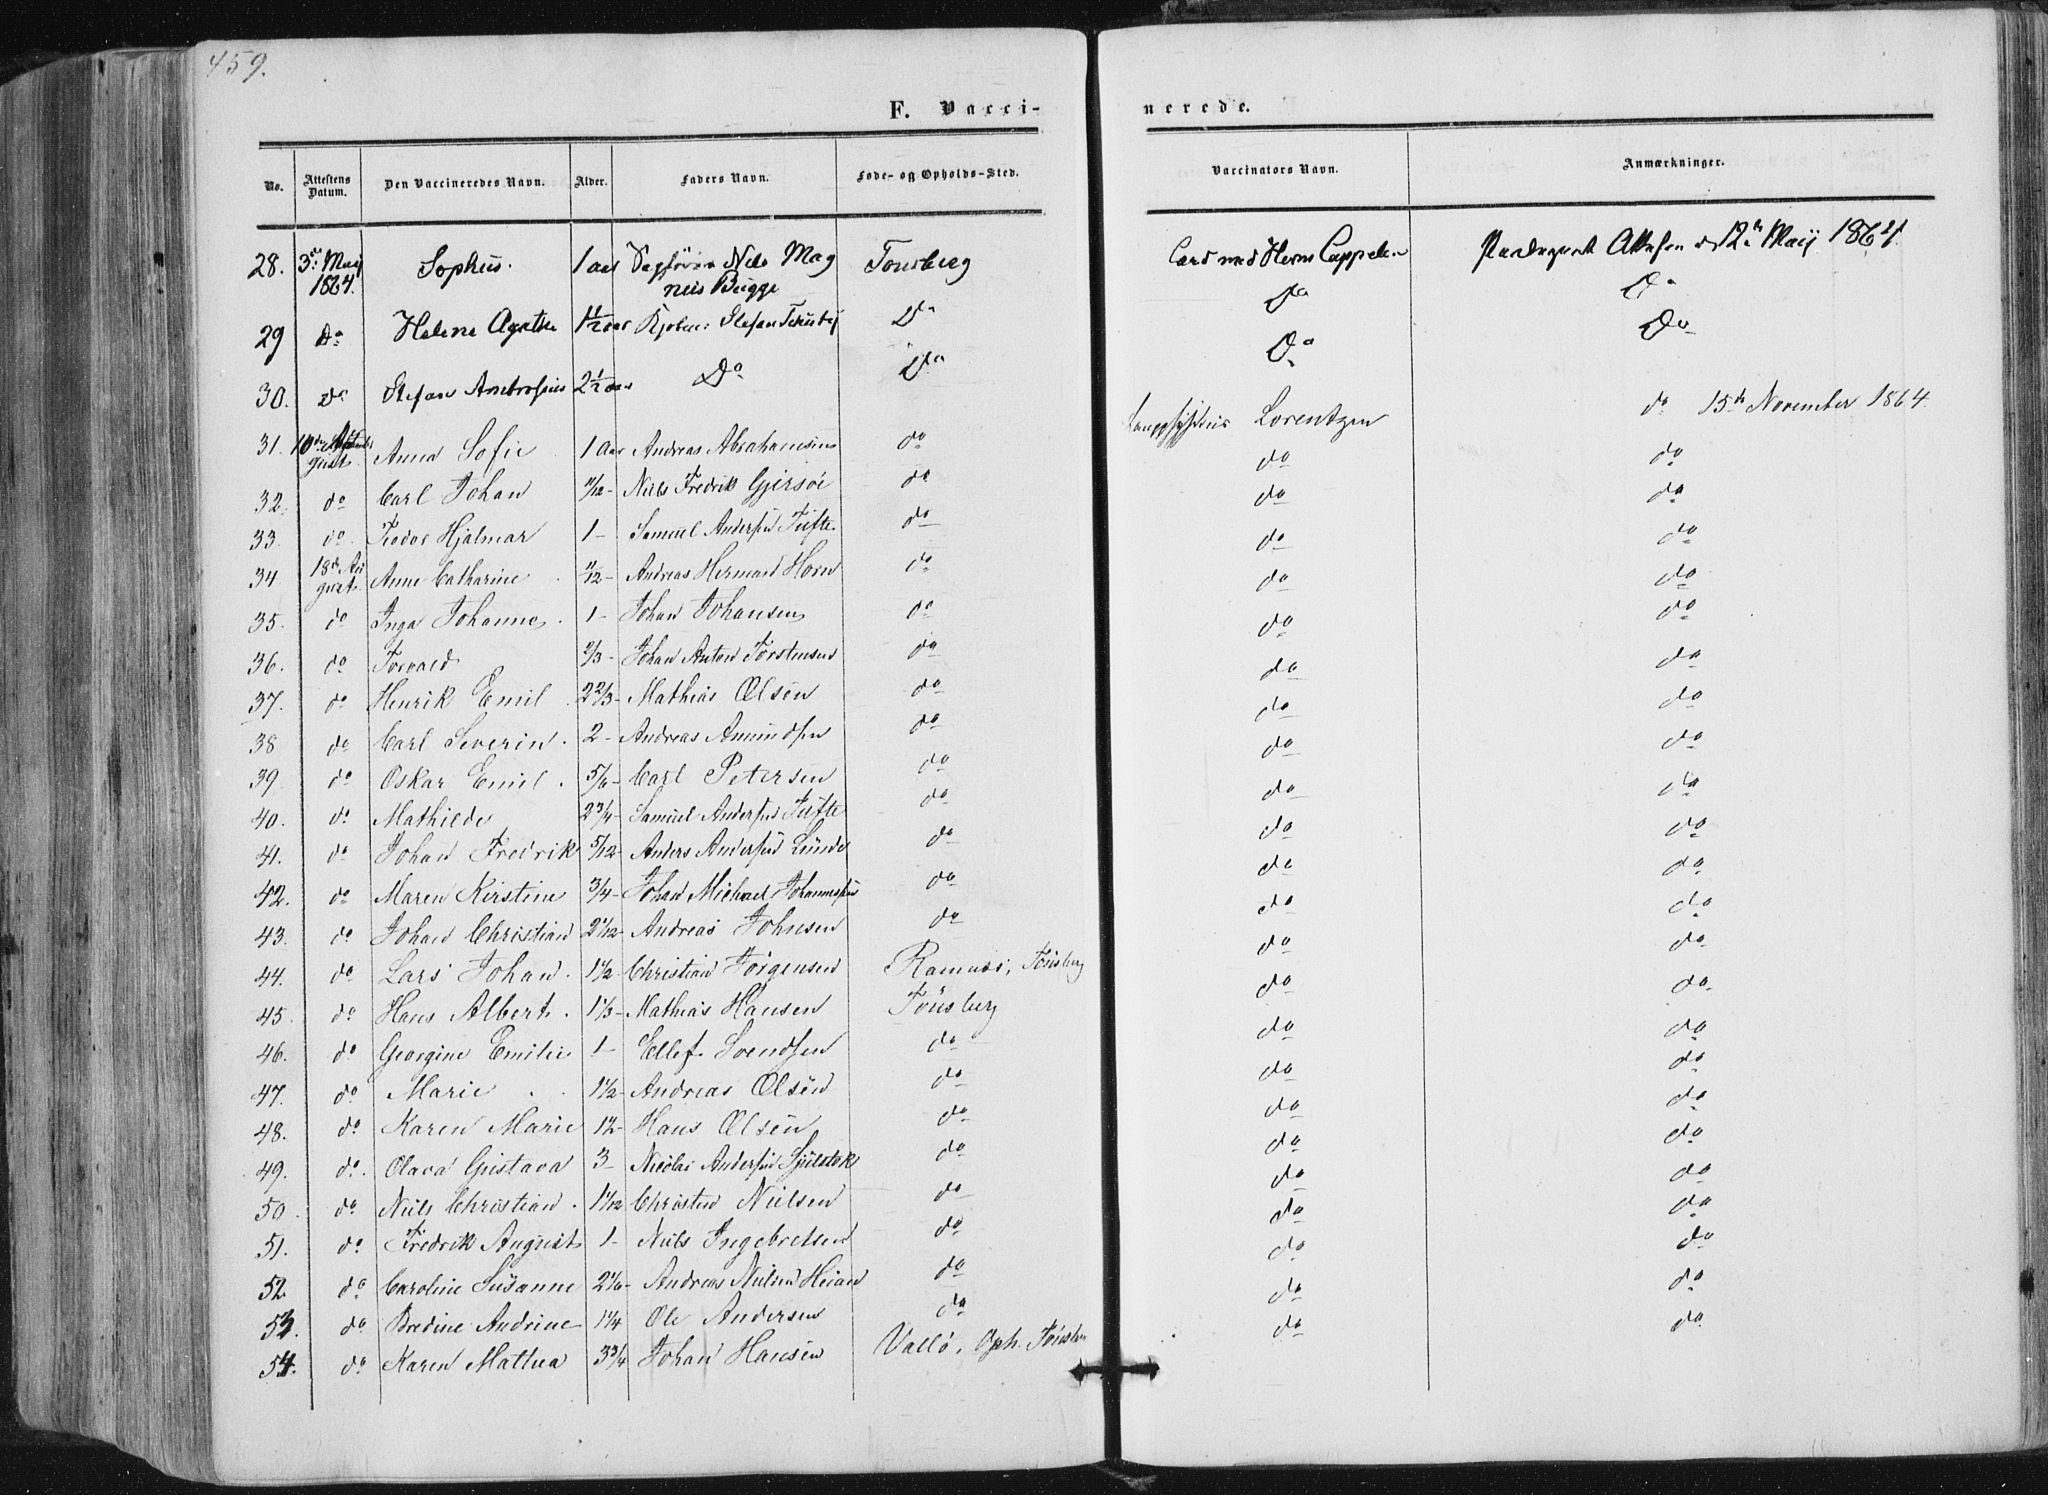 459.
F. Vacci-
nerede.
No. Attestens Datum. Den Vaccineredes Navn. Alder. Faders Navn. Føde- og Opholds-Sted. Vaccinators Navn. Anmærkninger.
28. 3die Maij 1864. Sophus. 1 aar Nils Magnus Bugge Tonsberg Cand med Herm Cappelen 12te Maij 1864.
29 Do Helene Agathe 1 1/2 aar Stefan Do Do Do
30. Do Stefan Ambrosius 2 1/2 aar Do Do Do Do
31. 10de August Anna Sofie 1 aar Andreas Abrahamsen do Lorentzen do 15de November 1864.
32. do Carl Johan 11/12 - Niels Fredrik Gjersøe do do do
33. do Teodor Hjalmar 1 - Samuel Andersen Tufte do do do
34 18de August Anne Catharine 11/12 - Andreas Herman Horn do do do
35. do Inga Johanne 1 - Johan Johansen do do do
36. do Torvald 2/3 - Johan Anton Torstensen do do do
37. do Henrik Emil 2 2/3 - Mathias Olsen do do do
38 do Carl Severin. 2 - Andreas Amundsen do do do
39. do Oskar Emil. 5/6 - Carl Petersen do do do
40. do Mathilde 2 3/4 - Samuel Andersen Tufte do do do
41. do Johan Fredrik 5/12 - Anders Andersen Lunde do do do
42. do Maren Kirstine 3/4 - Johan Michael Johannesen do do do
43. do Johan Christian 2 1/12 - Andreas Johnsen do do do
44. do Lars Johan. 1 1/2 - Christian Jörgensen Ramnæs, Tönsberg do do
45. do Hans Albert. 1 1/3 - Mathias Hansen Tönsberg do do
46. do Georgine Emilie 1 - Ellef Svendsen do do do
47. do Marie 1 1/2 - Andreas Olsen do do do
48. do Karen Marie 1 1/2 - Hans Olsen do do do
49. do. Olava Gustava 3 - Nicolai Andersen do do do
50. do. Niels Christian. 1 1/12 Christen Nielsen do do do
51. do Fredrik August 1 - Niels Ingebretsen do do do
52. do Caroline Susanne 2 1/6 - Andreas Nielsen Heian do do do
53. do Bredine Andrine 1 1/4 Ole Andersen do do do
54. do Karen Mathea 3 3/4 Johan Hansen Vallö, Oph. Tönsb. do do